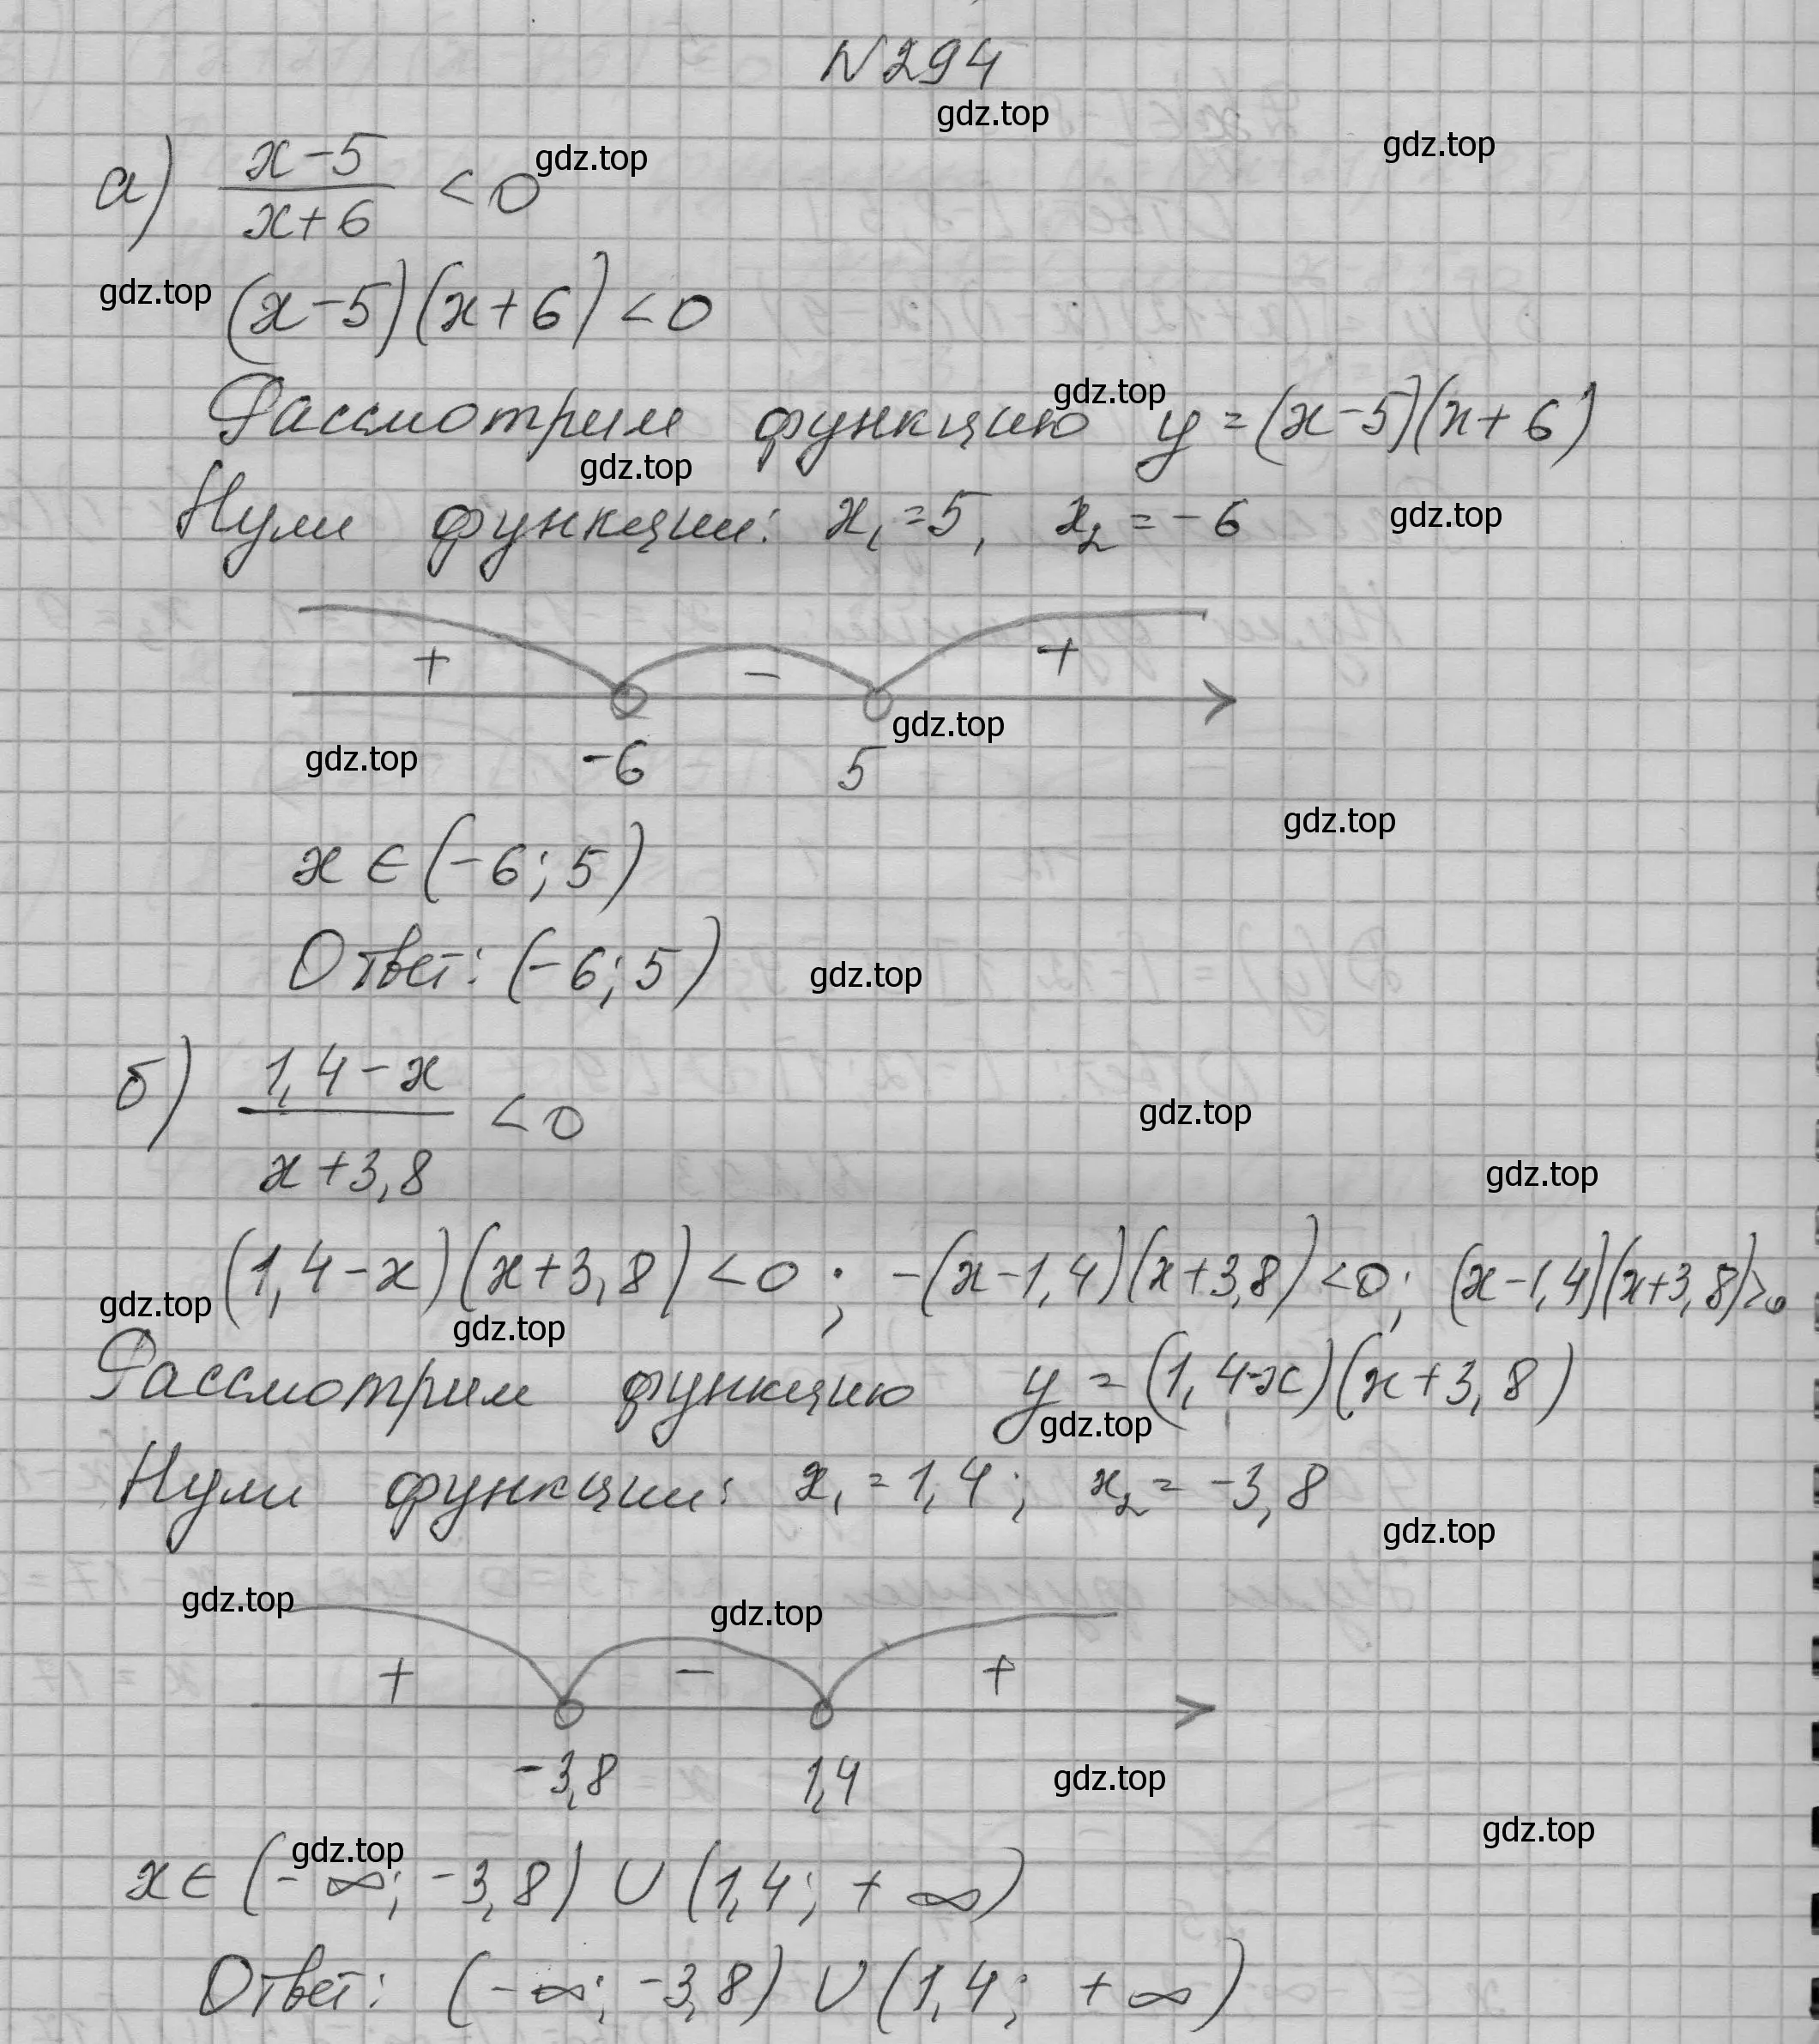 N 294
gdz.top
gdz.top
а) (x-5)/(x+6) < 0
gdz.top
gdz.top
(x-5)(x+6) < 0
gdz.top
Рассмотрим функцию y = (x-5)(x+6)
gdz.top
Нули функции: x₁ = 5, x₂ = -6
gdz.top
+ - +
gdz.top
-6 5
gdz.top
gdz.top
x ∈ (-6; 5)
Ответ: (-6; 5)
gdz.top
б) (1,4-x)/(x+3,8) < 0
gdz.top
gdz.top
(1,4-x)(x+3,8) < 0; -(x-1,4)(x+3,8) < 0; (x-1,4)(x+3,8) > 0
gdz.top
gdz.top
Рассмотрим функцию y = (1,4-x)(x+3,8)
gdz.top
Нули функции: x₁ = 1,4; x₂ = -3,8
gdz.top
gdz.top
gdz.top
+ - +
-3,8 1,4
gdz.top
gdz.top
gdz.top
x ∈ (-∞; -3,8) ∪ (1,4; +∞)
Ответ: (-∞; -3,8) ∪ (1,4; +∞)